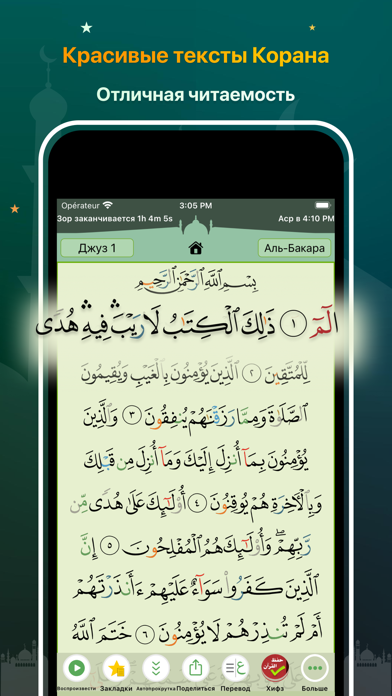 Красивые тексты Корана
Отличная читаемость
Opérateur 3:05 PM
Зор заканчивается 1h 4m 5s Аср в 4:10 PM
Джуз 1 Аль-Бакара
بِسْمِ اللَّهِ الرَّحْمَٰنِ الرَّحِيمِ
الٓمٓ ١ ذَٰلِكَ الْكِتَابُ لَا رَيْبَ ۛ فِيهِ ۛ هُدًى
لِّلْمُتَّقِينَ ٢ الَّذِينَ يُؤْمِنُونَ بِالْغَيْبِ وَيُقِيمُونَ
الصَّلَاةَ وَمِمَّا رَزَقْنَاهُمْ يُنفِقُونَ ٣ وَالَّذِينَ
يُؤْمِنُونَ بِمَا أُنزِلَ إِلَيْكَ وَمَا أُنزِلَ مِن قَبْلِكَ
وَبِالْآخِرَةِ هُمْ يُوقِنُونَ ٤ أُولَٰئِكَ عَلَىٰ هُدًى مِّن
رَّبِّهِمْ ۖ وَأُولَٰئِكَ هُمُ الْمُفْلِحُونَ ٥ إِنَّ
الَّذِينَ كَفَرُوا سَوَاءٌ عَلَيْهِمْ أَأَنذَرْتَهُمْ
أَمْ لَمْ تُنذِرْهُمْ لَا يُؤْمِنُونَ ٦ خَتَمَ اللَّهُ
حفظ القرآن
Воспроизвести Закладки Автопрокрутка Поделиться Перевод Хифз Больше